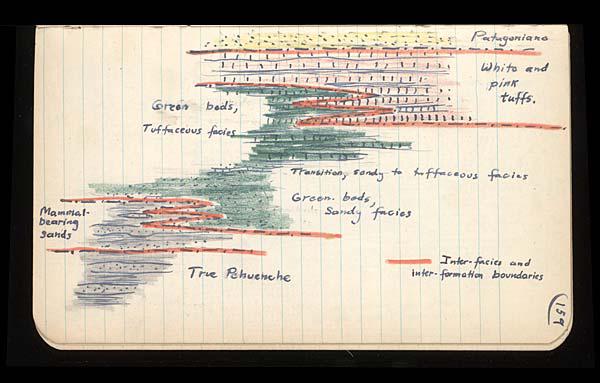 Patagoniano
White and
pink
tuffs.
Green beds,
Tuffaceous facies
Transition, sandy to tuffaceous facies
Green beds,
Sandy facies
Mammal-
bearing
sands
True Pehuenche
Inter-facies and
inter-formation boundaries
159